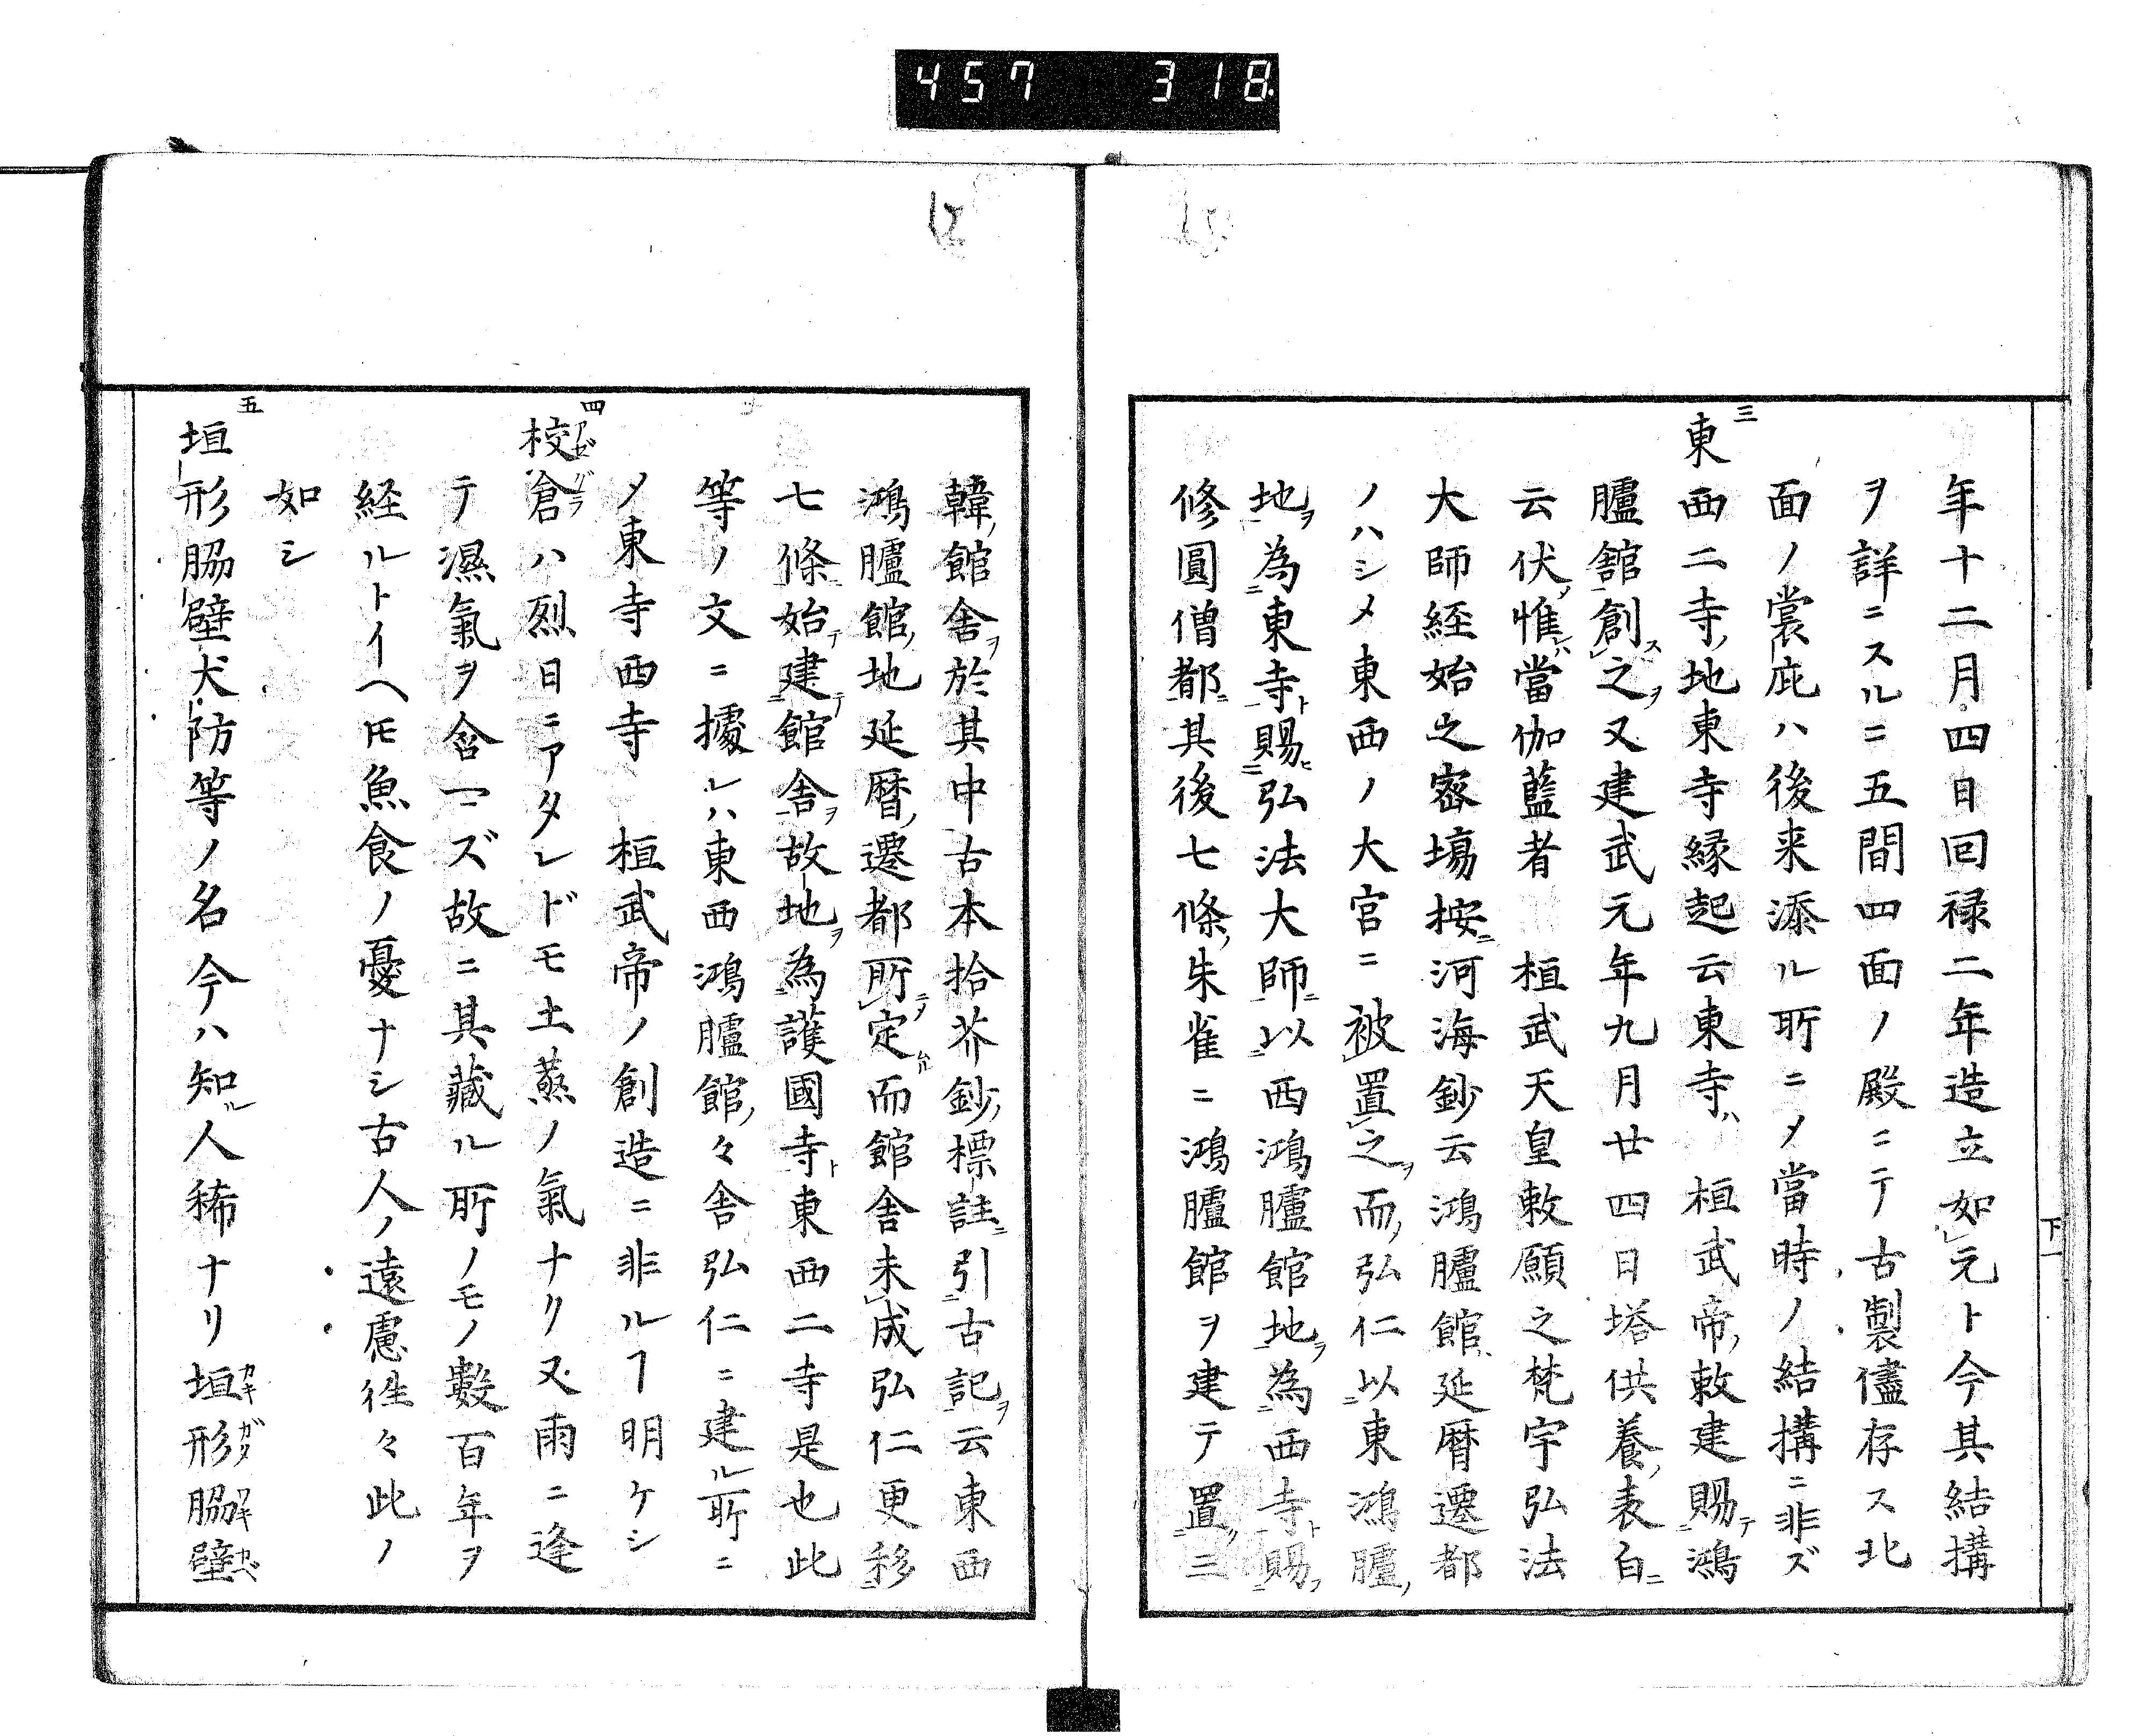 457 318
下一
年十二月四日回禄二年造立如元ト今其結構
ヲ詳ニスルニ五間四面ノ殿ニテ古製儘存ス北
面ノ裳庇ハ後来添ル所ニメ當時ノ結搆ニ非ズ
三
東西二寺ノ地東寺縁起云東寺ハ 桓武帝ノ敕建賜テ鴻
臚舘創之ヲ又建武元年九月廿四日塔供養ノ表白ニ
云伏ノ惟ハ當伽藍者 桓武天皇敕願之梵宇弘法
大師経始之密場按ニ河海鈔云鴻臚館延暦遷都
ノハシメ東西ノ大宮ニ被置之ヲ而ノ弘仁以東鴻臚ノ
地ヲ為東寺ト賜ヒ弘法大師ニ以西鴻臚館地ヲ為西寺ト賜フ
修圓僧都ニ其後七條ノ朱雀ニ鴻臚館ヲ建テ置ク三
韓ノ館舎ヲ於其中古本拾芥鈔ノ標註ニ引古記ヲ云東西
鴻臚館ノ地延暦ノ遷都所ニヲ定ムル而館舎未成弘仁更移
七條始テ建テ館舎ヲ故地ヲ為護國寺ト東西二寺是也此
等ノ文ニ據レハ東西鴻臚館ノ々舎弘仁ニ建ル所ニ
メ東寺西寺 桓武帝ノ創造ニ非ルヿ明ケシ
四
校倉アゼグラハ烈日ニアタレドモ土蒸ノ氣ナク又雨ニ逢
テ濕氣ヲ含マズ故ニ其藏ル所ノモノ數百年ヲ
経ルトイヘ𪜈魚食ノ憂ナシ古人ノ遠慮徃々此ノ
如シ
五
垣形脇壁犬防等ノ名今ハ知ル人稀ナリ垣形カキガタ脇壁ワキカベ